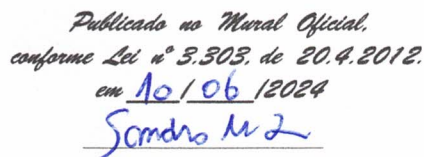 Publicado no Mural Oficial,
conforme Lei nº 3.303, de 20.4.2012.
em 10 / 06 /2024
Sandro M